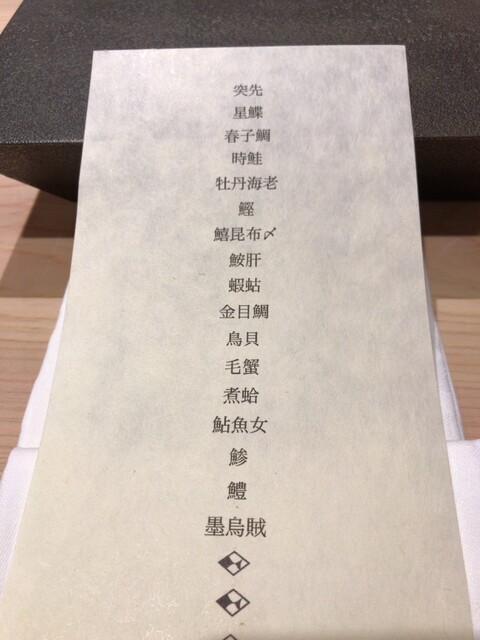 突先
星鰈
春子鯛
時鮭
牡丹海老
鰹
鱚昆布〆
鮟肝
蝦蛄
金目鯛
鳥貝
毛蟹
煮蛤
鮎魚女
鯵
鱧
墨烏賊